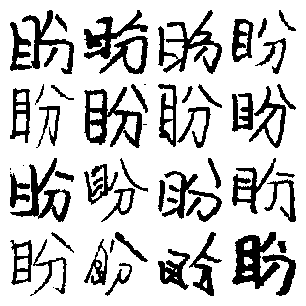 盼盼盼盼
盼盼盼盼
盼盼盼盼
盼盼盼盼